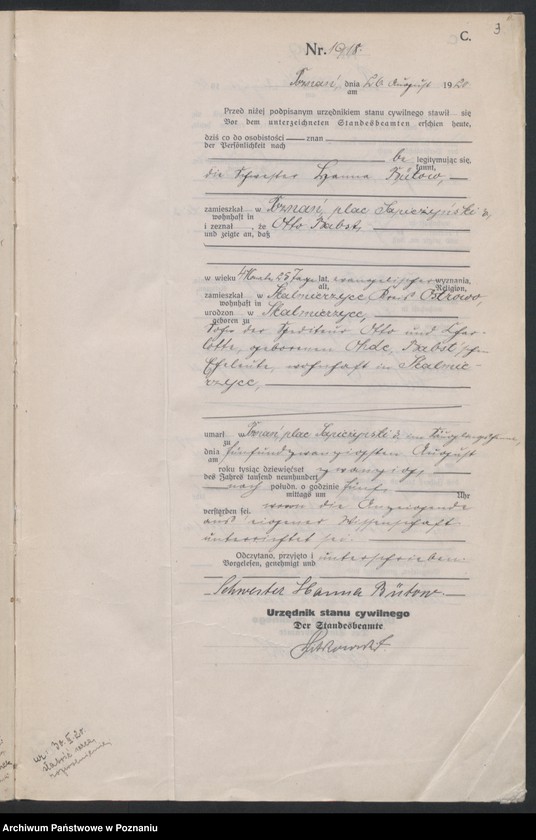 3
C.
Nr. 1918.
Poznań dnia 26 August 1920
am
Przed niżej podpisanym urzędnikiem stanu cywilnego stawił się
Vor dem unterzeichneten Standesbeamten erschien heute,
dziś co do osobistości znan
der Persönlichkeit nach
be legitymując się,
kannt,
die Schwester Hanna Bütow,
zamieszkał w Poznań, plac Sapieżyński
wohnhaft in
i zeznał, że Otto Babst,
und zeigte an, daß
w wieku 4 Monate 25 Tage lat, evangelischer wyznania,
alt, Religion,
zamieszkał w Skalmierzyce, Kreis Ostrowo,
wohnhaft in
urodzon w Skalmierzyce,
geboren zu
Sohn der Spediteur Otto und Char-
lotte, geborenen Babst'schen
Eheleute, wohnhaft in Skalmie-
rzyce,
umarł w Poznań, plac Sapieżyński im Säuglingsheim,
zu
dnia fünfundzwanzigsten August
am
roku tysiąc dziewięćset zwanzig,
des Jahres tausend neunhundert
nach połudn. o godzinie fünf
mittags um Uhr
verstorben sei. wovon die Anzeigende
aus eigener Wissenschaft
unterrichtet sei.
Odczytano, przyjęto i unterschrieben.
Vorgelesen, genehmigt und
Schwester Hanna Bütow
Urzędnik stanu cywilnego
Der Standesbeamte.
Archiwum Państwowe w Poznaniu